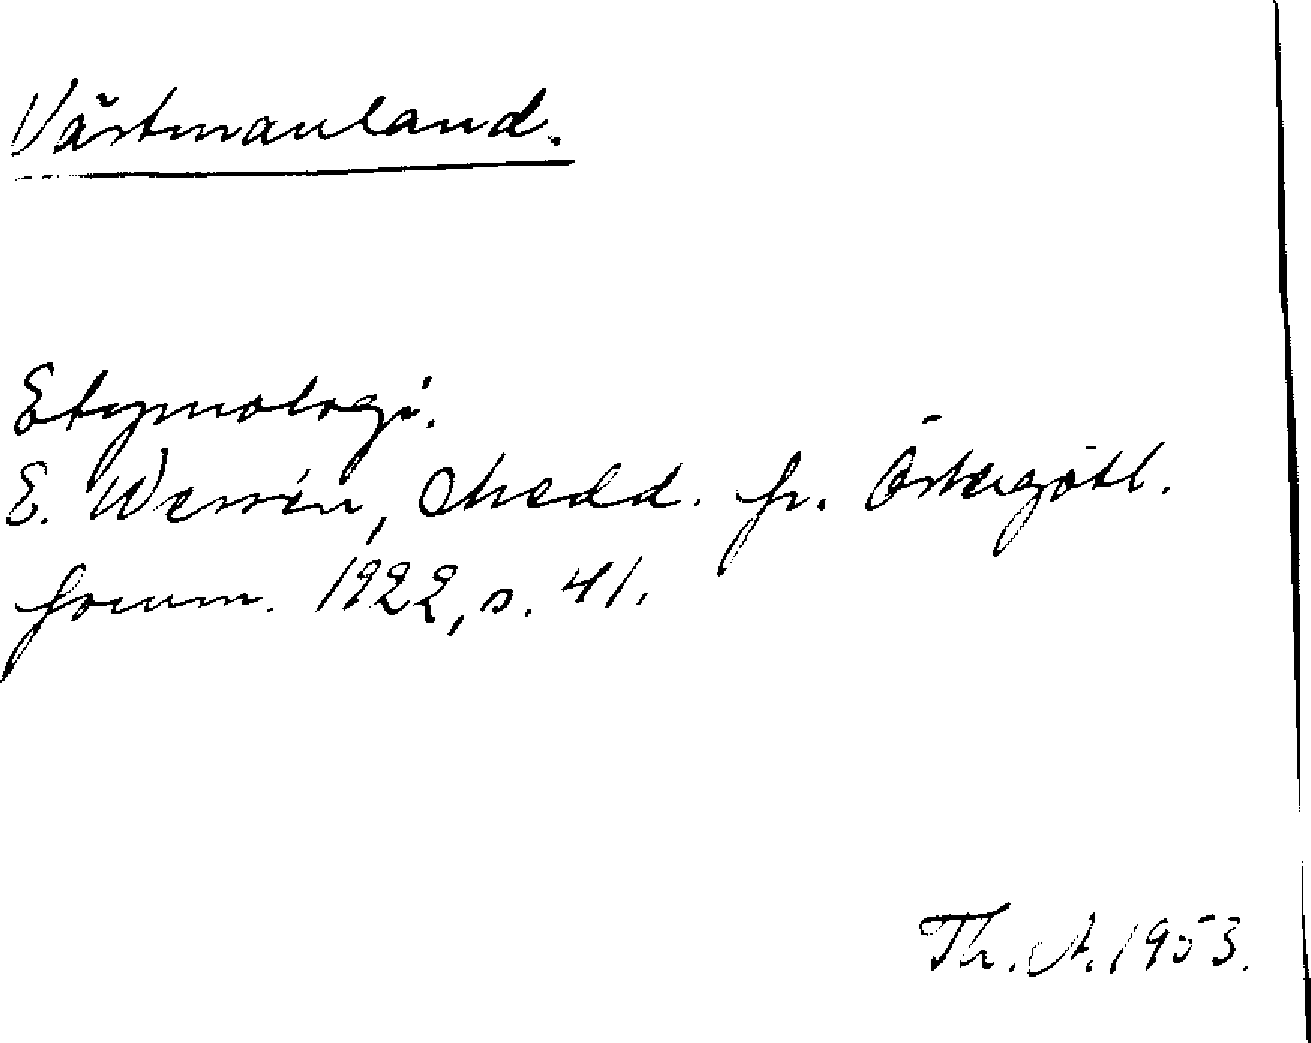 Västmanland.
Etymologi.
E. Wessén, Medd. fr. Östergötl.
fornm. 1922, s. 41.
Th. A. 1953.